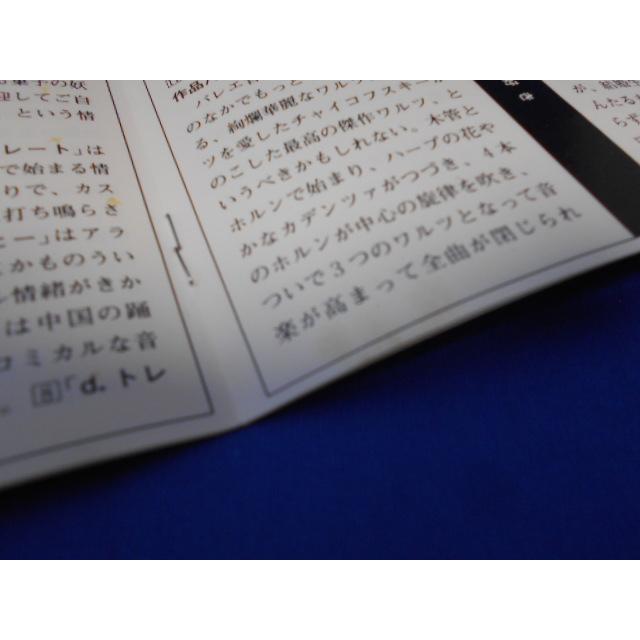 の妖
迎してご自
という情
レート」は
で始まる情
りで、カス
打ち鳴らさ
ヒー」はアラ
とかものうい
情緒がきか
は中国の踊
コミカルな音
「d. トレ
作品
バレエ
のなかでもっと
る、絢爛華麗なワルツ
ツを愛したチャイコフスキーが
のこした最高の傑作ワルツ、と
いうべきかもしれない。木管と
ホルンで始まり、ハープの花や
かなカデンツァがつづき、4本
のホルンが中心の旋律を吹き、
ついで3つのワルツとなって音
楽が高まって全曲が閉じられ
が、
んたる
らず